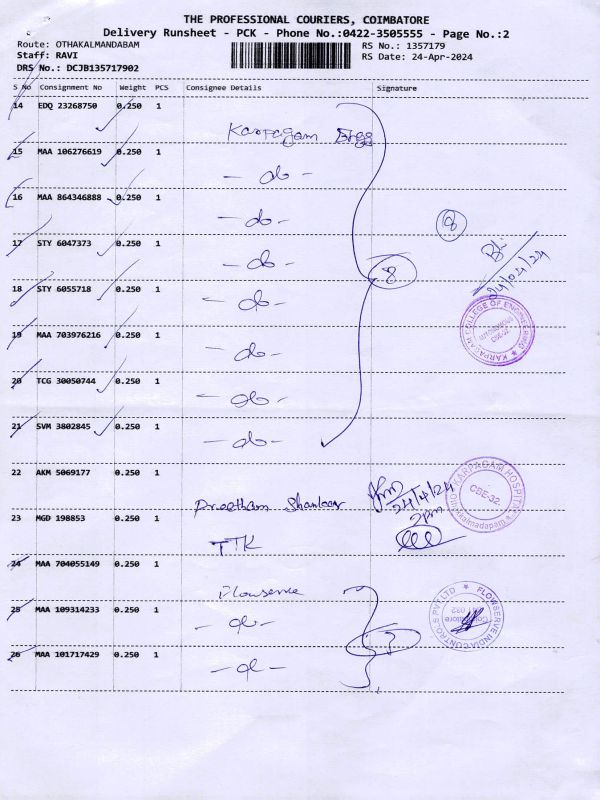 THE PROFESSIONAL COURIERS, COIMBATORE
Delivery Runsheet - PCK - Phone No.:0422-3505555 - Page No.:2
Route: OTHAKALMANDABAM
RS No.: 1357179
Staff: RAVI
RS Date: 24-Apr-2024
DRS No.: DCJB135717902
S No Consignment No Weight PCS Consignee Details Signature
14 EDQ 23268750 0.250 1
Karpagam Engg
15 MAA 106276619 0.250 1
- do -
16 MAA 864346888 0.250 1
- do -
8
17 STY 6047373 0.250 1
- do -
24/04/24
8
18 STY 6055718 0.250 1
- do -
KARPAGAM COLLEGE OF ENGINEERING
CBE-32
19 MAA 703976216 0.250 1
- do -
20 TCG 30050744 0.250 1
- do -
21 SVM 3802845 0.250 1
- do -
22 AKM 5069177 0.250 1
KARPAGAM HOSPITAL
CBE-32.
Othakkalmandapam
Preetham Shankar
24/4/24
2pm
23 MGD 198853 0.250 1
TTK
24 MAA 704055149 0.250 1
Flowserve
25 MAA 109314233 0.250 1
- do -
FLOWSERVE INDIA CONTROLS PVT LTD
Coimbatore
3
26 MAA 101717429 0.250 1
- do -